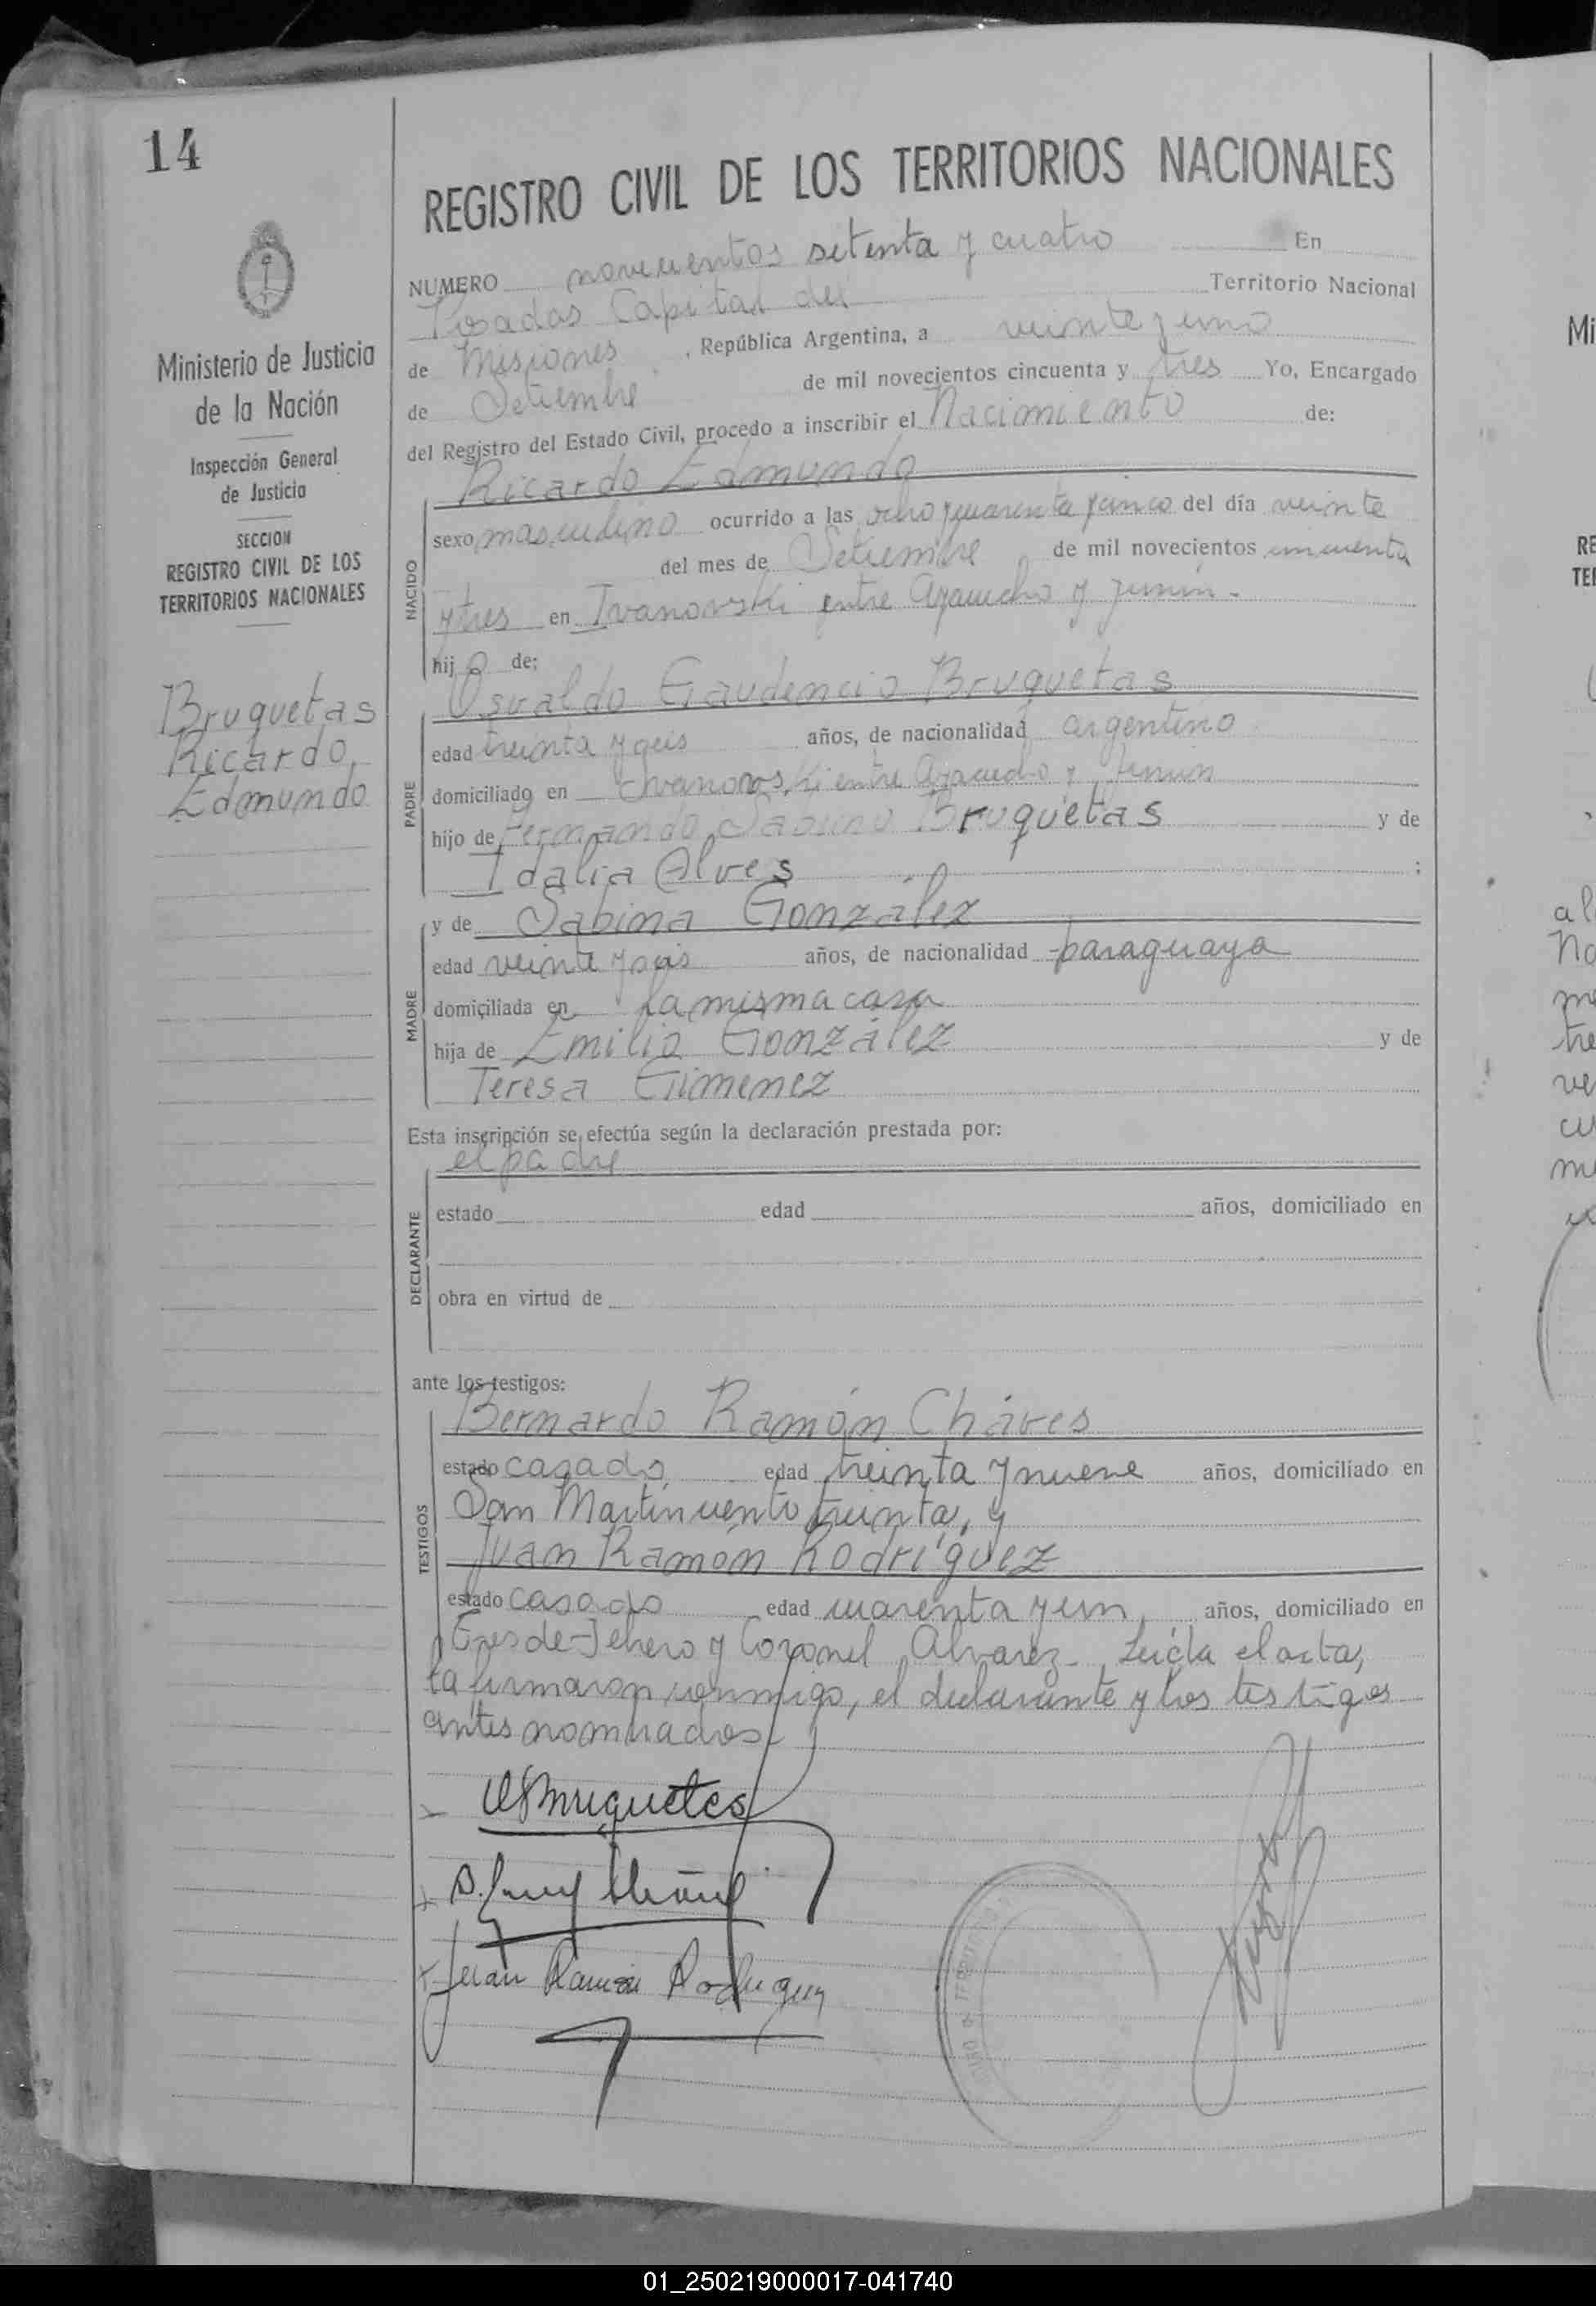 14
Ministerio de Justicia
de la Nación
Inspección General
de Justicia
SECCION
REGISTRO CIVIL DE LOS
TERRITORIOS NACIONALES
Bruquetas
Ricardo
Edmundo
REGISTRO CIVIL DE LOS TERRITORIOS NACIONALES
NUMERO novecientos setenta y cuatro En
Posadas Capital del Territorio Nacional
de Misiones, República Argentina, a veinte y uno
de Setiembre de mil novecientos cincuenta y tres Yo, Encargado
del Registro del Estado Civil, procedo a inscribir el Nacimiento de:
Ricardo Edmundo
NACIDO
sexo masculino ocurrido a las ocho y cuarenta y cinco del día veinte
del mes de Setiembre de mil novecientos cincuenta
y tres en Ivanovski entre Ayacucho y Junín.-
hijo de:
Osvaldo Gaudencio Bruquetas
PADRE
edad treinta y seis años, de nacionalidad argentino
domiciliado en Ivanovski entre Ayacucho y Junín
hijo de Fernando Sabino Bruquetas y de
Idalia Alves ;
y de Sabina González
MADRE
edad veinte y seis años, de nacionalidad paraguaya
domiciliada en La misma casa
hija de Emilio González y de
Teresa Gimenez
Esta inscripción se efectúa según la declaración prestada por:
el padre
DECLARANTE
estado edad años, domiciliado en
obra en virtud de
ante los testigos:
Bernardo Ramón Cháves
TESTIGOS
estado casado edad treinta y nueve años, domiciliado en
San Martín ciento treinta, y
Juan Ramón Rodríguez
estado casado edad cuarenta y un años, domiciliado en
Tres de Febrero y Coronel Alvarez. Leída el acta,
la firmaron conmigo, el declarante y los testigos
antes nominados
Juan Ramón Rodriguez
01_250219000017-041740